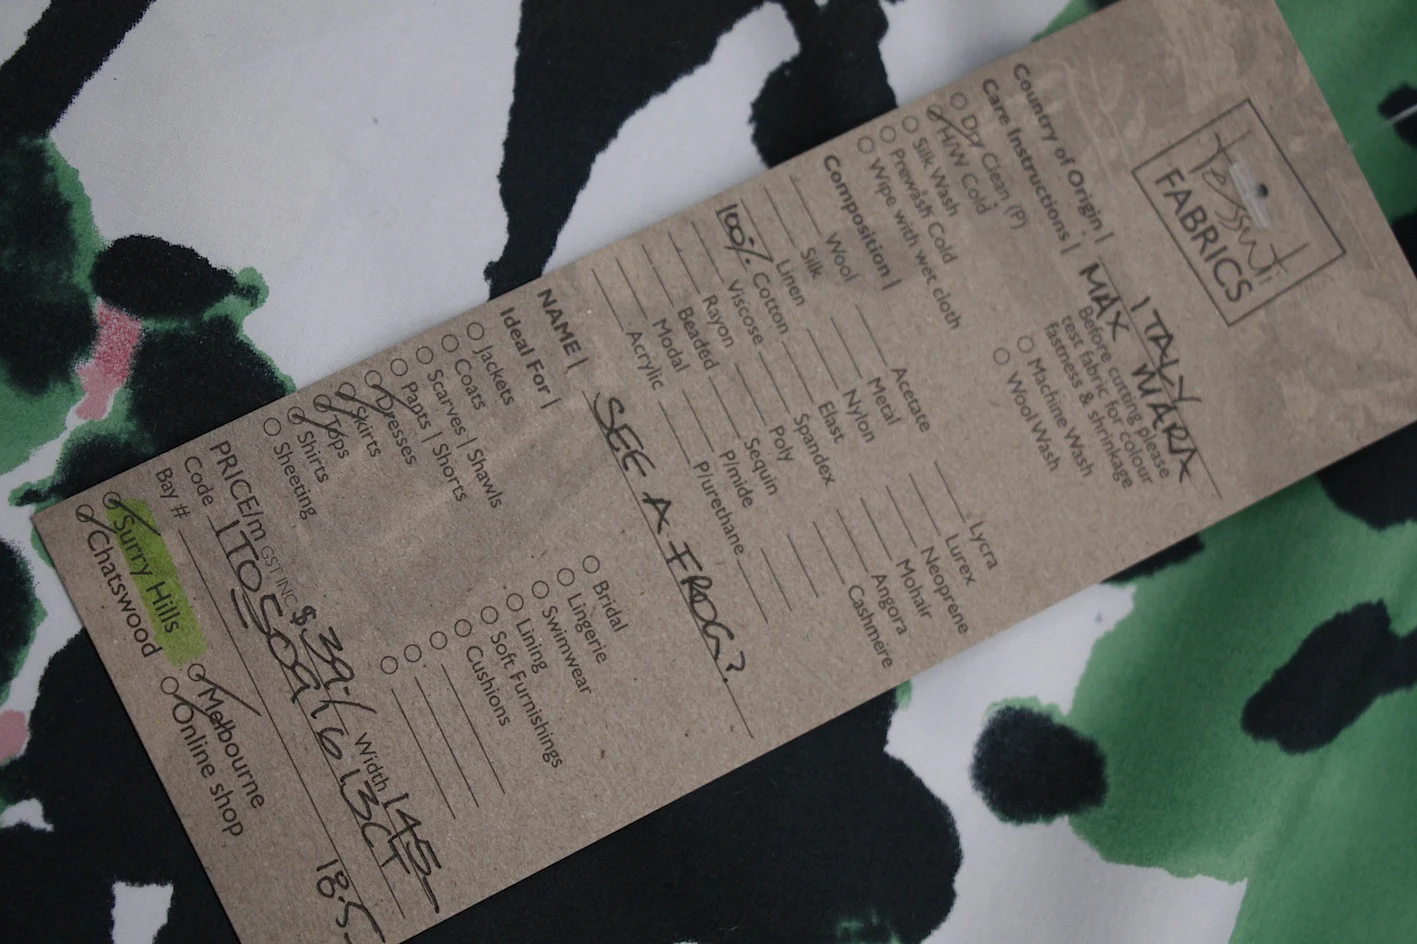 tessuti
FABRICS
Country of Origin | ITALY
MAX MARA
Care Instructions | Before cutting please
test fabric for colour
fastness & shrinkage
Dry Clean (P)
H/W Cold
Silk Wash
Prewash Cold
Wipe with wet cloth
Machine Wash
Wool Wash
Composition |
Wool Acetate Lycra
Silk Metal Lurex
Linen Nylon Neoprene
100% Cotton Elast Mohair
Viscose Spandex Angora
Rayon Poly Cashmere
Beaded Sequin
Modal P/mide
Acrylic P/urethane
NAME | SEE A FROG?
Ideal For |
Jackets Bridal
Coats Lingerie
Scarves | Shawls Swimwear
Pants | Shorts Lining
Dresses Soft Furnishings
Skirts Cushions
Tops
Shirts
Sheeting
PRICE/m GST INC $39./ Width 145
Code
Bay #
Surry Hills Melbourne
Chatswood Online shop